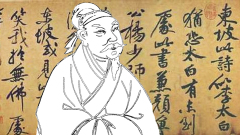 東坡此詩似李太白
猶恐太白有未到
處此書兼顏魯
公楊少師
東坡或見
笑我於無佛處